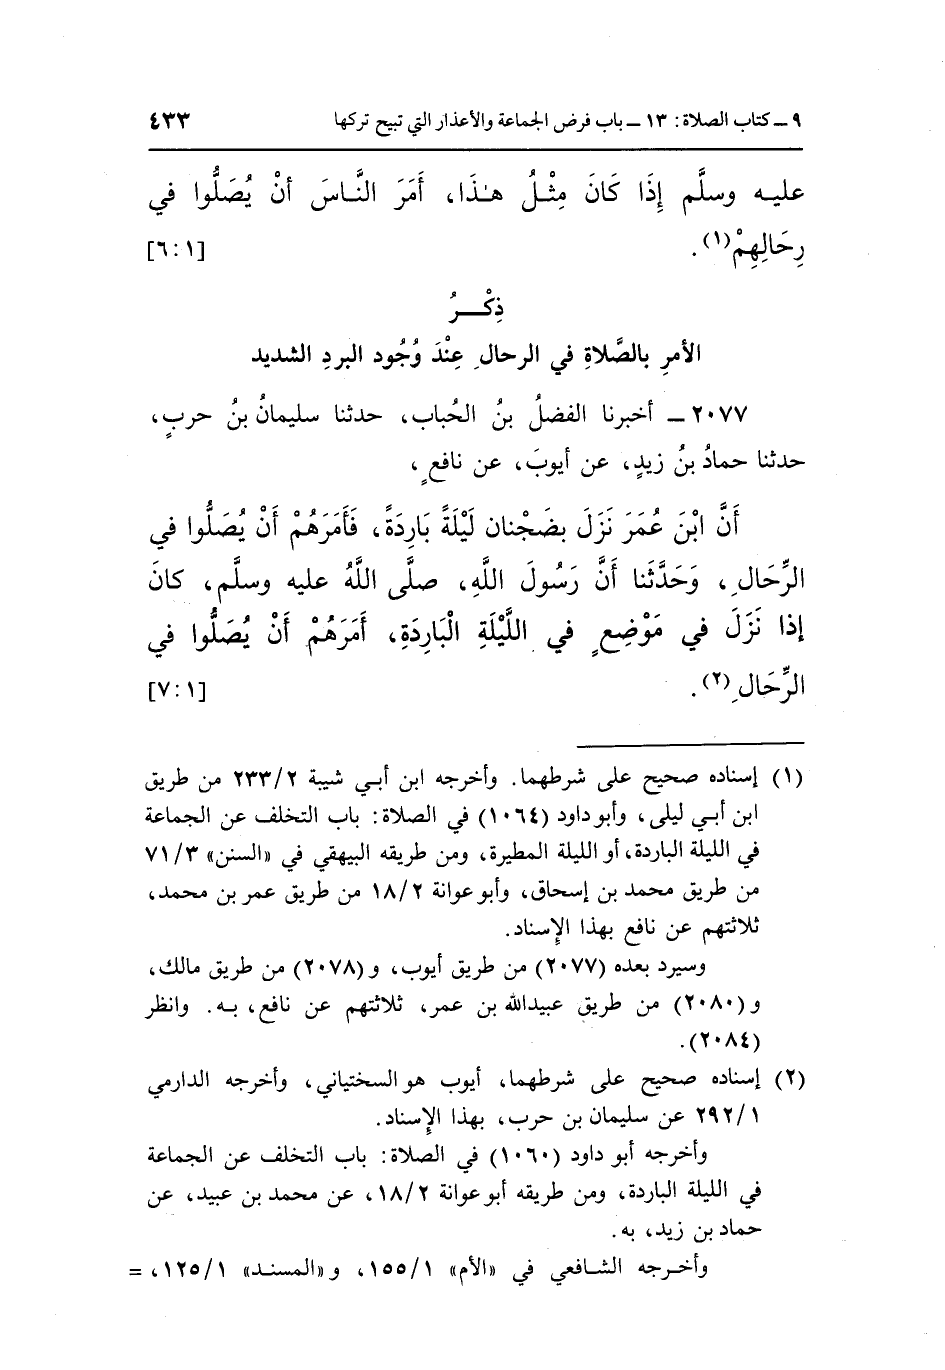 ٩ ــ كتاب الصلاة: ١٣ ــ باب فرض الجماعة والأعذار التي تبيح تركها ٤٣٣
عليـه وسلَّم إِذَا كَانَ مِثْـلُ هـٰذَا، أَمَرَ النَّـاسَ أنْ يُصَلُّوا في
رِحَالِهِمْ(١). [١:٦]
ذِكْـــرُ
الأمرِ بالصَّلاةِ في الرحالِ عِنْدَ وُجُود البردِ الشديد
٢٠٧٧ ــ أخبرنا الفضلُ بنُ الحُباب، حدثنا سليمانُ بنُ حربٍ،
حدثنا حمادُ بنُ زيدٍ، عن أيوبَ، عن نافعٍ،
أَنَّ ابْنَ عُمَرَ نَزَلَ بضَجْنان لَيْلَةً بَارِدَةً، فَأَمَرَهُمْ أَنْ يُصَلُّوا في
الرِّحَالِ، وَحَدَّثَنا أَنَّ رَسُولَ اللَّهِ، صلَّى اللَّهُ عليه وسلَّم، كانَ
إذا نَزَلَ في مَوْضِعٍ في اللَّيْلَةِ الْبَارِدَةِ، أَمَرَهُمْ أَنْ يُصَلُّوا في
الرِّحَالِ(٢). [١:٧]
(١) إسناده صحيح على شرطهما. وأخرجه ابن أبـي شيبة ٢٣٣/٢ من طريق
ابن أبـي ليلى، وأبو داود (١٠٦٤) في الصلاة: باب التخلف عن الجماعة
في الليلة الباردة، أو الليلة المطيرة، ومن طريقه البيهقي في «السنن» ٧١/٣
من طريق محمد بن إسحاق، وأبو عوانة ١٨/٢ من طريق عمر بن محمد،
ثلاثتهم عن نافع بهذا الإِسناد.
وسيرد بعده (٢٠٧٧) من طريق أيوب، و(٢٠٧٨) من طريق مالك،
و(٢٠٨٠) من طريق عبيدالله بن عمر، ثلاثتهم عن نافع، بـه. وانظر
(٢٠٨٤).
(٢) إسناده صحيح على شرطهما، أيوب هو السختياني، وأخرجه الدارمي
٢٩٢/١ عن سليمان بن حرب، بهذا الإِسناد.
وأخرجه أبو داود (١٠٦٠) في الصلاة: باب التخلف عن الجماعة
في الليلة الباردة، ومن طريقه أبو عوانة ١٨/٢، عن محمد بن عبيد، عن
حماد بن زيد، به.
وأخـرجه الشـافعي في «الأم» ١٥٥/١، و«المسنـد» ١٢٥/١، =